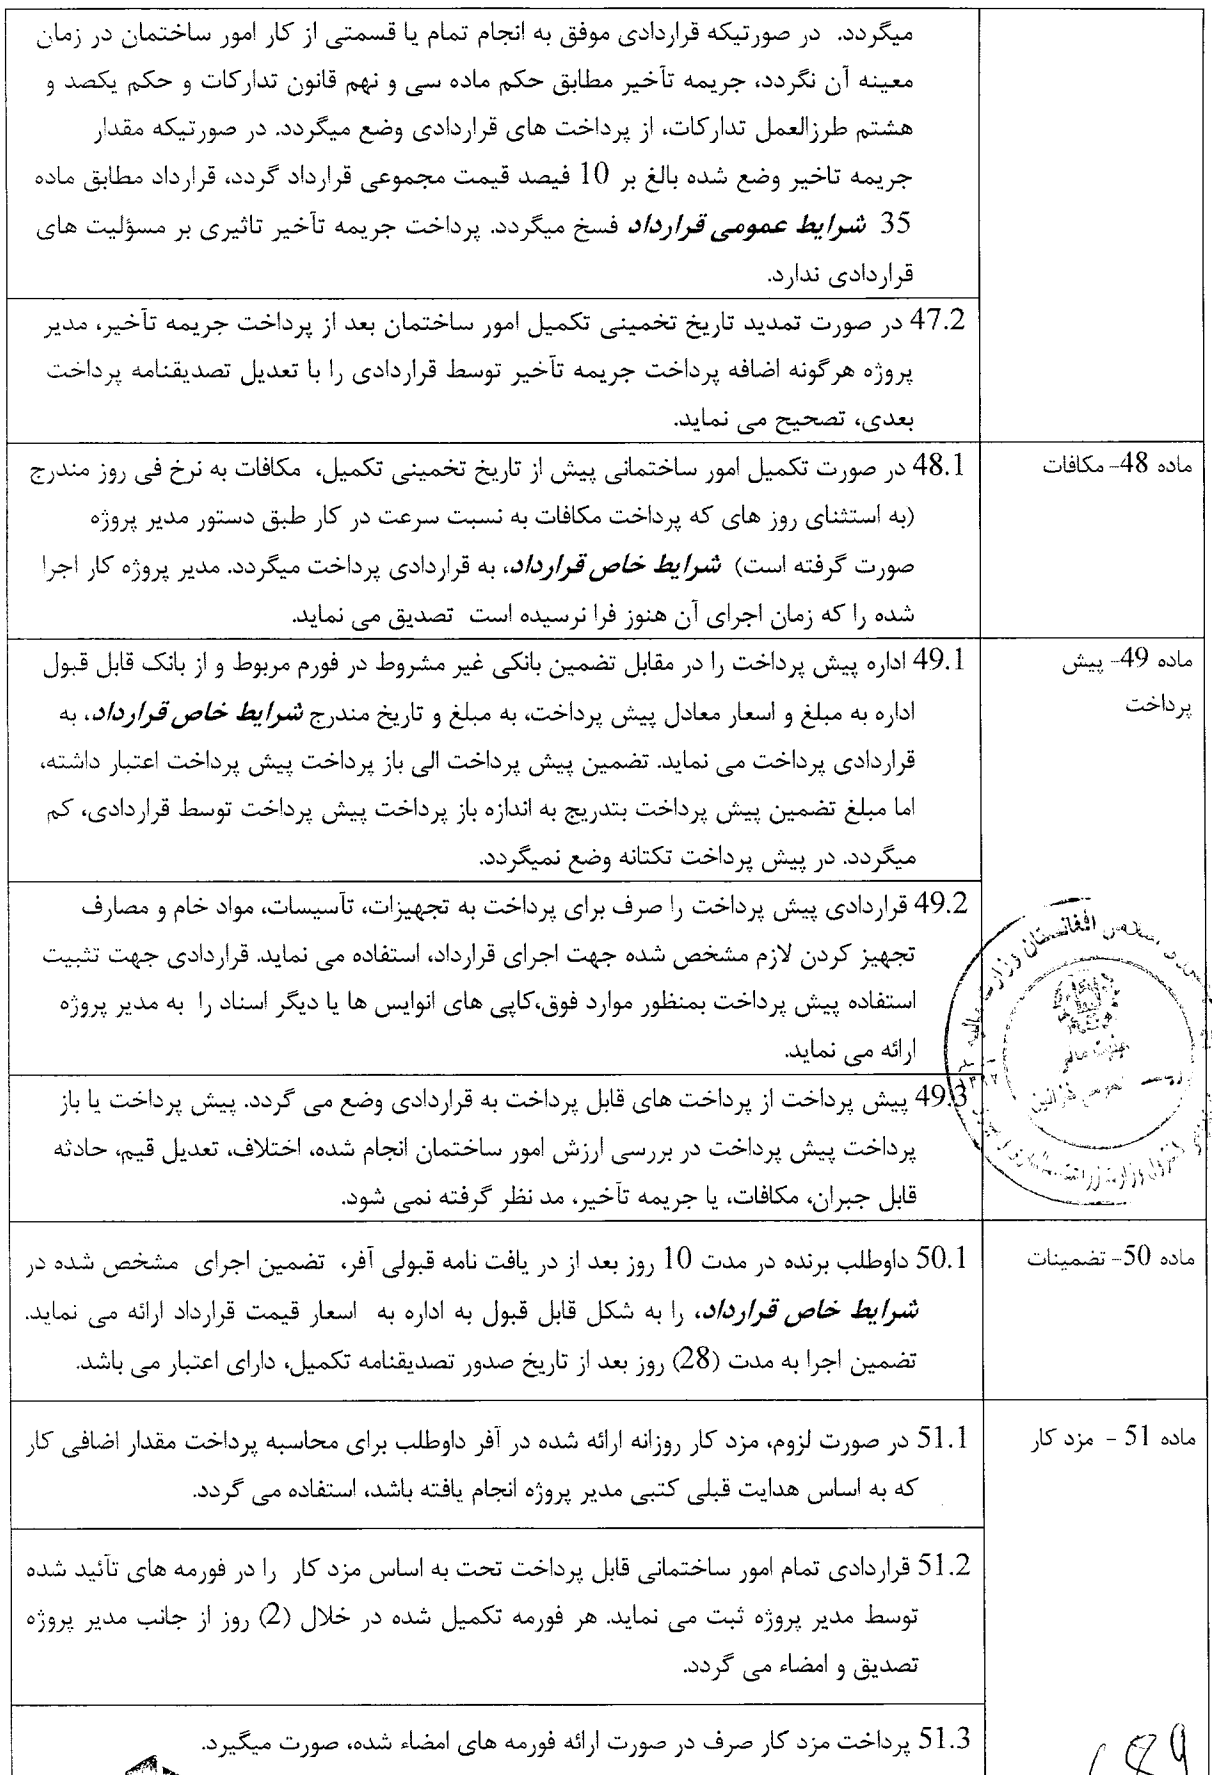 میگردد. در صورتیکه قراردادی موفق به انجام تمام یا قسمتی از کار امور ساختمان در زمان
معینه آن نگردد، جریمه تآخیر مطابق حکم ماده سی و نهم قانون تدارکات و حکم یکصد و
هشتم طرزالعمل تدارکات، از پرداخت های قراردادی وضع میگردد. در صورتیکه مقدار
جریمه تاخیر وضع شده بالغ بر 10 فیصد قیمت مجموعی قرارداد گردد، قرارداد مطابق ماده
35 شرایط عمومی قرارداد فسخ میگردد. پرداخت جریمه تآخیر تاثیری بر مسؤلیت های
قراردادی ندارد.
47.2 در صورت تمدید تاریخ تخمینی تکمیل امور ساختمان بعد از پرداخت جریمه تآخیر، مدیر
پروژه هرگونه اضافه پرداخت جریمه تآخیر توسط قراردادی را با تعدیل تصدیقنامه پرداخت
بعدی، تصحیح می نماید.
ماده 48- مکافات
48.1 در صورت تکمیل امور ساختمانی پیش از تاریخ تخمینی تکمیل، مکافات به نرخ فی روز مندرج
(به استثنای روز های که پرداخت مکافات به نسبت سرعت در کار طبق دستور مدیر پروژه
صورت گرفته است) شرایط خاص قرارداد، به قراردادی پرداخت میگردد. مدیر پروژه کار اجرا
شده را که زمان اجرای آن هنوز فرا نرسیده است تصدیق می نماید.
ماده 49- پیش
پرداخت
49.1 اداره پیش پرداخت را در مقابل تضمین بانکی غیر مشروط در فورم مربوط و از بانک قابل قبول
اداره به مبلغ و اسعار معادل پیش پرداخت، به مبلغ و تاریخ مندرج شرایط خاص قرارداد، به
قراردادی پرداخت می نماید. تضمین پیش پرداخت الی باز پرداخت پیش پرداخت اعتبار داشته،
اما مبلغ تضمین پیش پرداخت بتدریج به اندازه باز پرداخت پیش پرداخت توسط قراردادی، کم
میگردد. در پیش پرداخت تکتانه وضع نمیگردد.
49.2 قراردادی پیش پرداخت را صرف برای پرداخت به تجهیزات، تآسیسات، مواد خام و مصارف
تجهیز کردن لازم مشخص شده جهت اجرای قرارداد، استفاده می نماید. قراردادی جهت تثبیت
استفاده پیش پرداخت بمنظور موارد فوق،کاپی های انوایس ها یا دیگر اسناد را به مدیر پروژه
ارائه می نماید.
49.3 پیش پرداخت از پرداخت های قابل پرداخت به قراردادی وضع می گردد. پیش پرداخت یا باز
پرداخت پیش پرداخت در بررسی ارزش امور ساختمان انجام شده، اختلاف، تعدیل قیم، حادثه
قابل جبران، مکافات، یا جریمه تآخیر، مد نظر گرفته نمی شود.
ماده 50- تضمینات
50.1 داوطلب برنده در مدت 10 روز بعد از در یافت نامه قبولی آفر، تضمین اجرای مشخص شده در
شرایط خاص قرارداد، را به شکل قابل قبول به اداره به اسعار قیمت قرارداد ارائه می نماید.
تضمین اجرا به مدت (28) روز بعد از تاریخ صدور تصدیقنامه تکمیل، دارای اعتبار می باشد.
ماده 51 - مزد کار
51.1 در صورت لزوم، مزد کار روزانه ارائه شده در آفر داوطلب برای محاسبه پرداخت مقدار اضافی کار
که به اساس هدایت قبلی کتبی مدیر پروژه انجام یافته باشد، استفاده می گردد.
51.2 قراردادی تمام امور ساختمانی قابل پرداخت تحت به اساس مزد کار را در فورمه های تآئید شده
توسط مدیر پروژه ثبت می نماید. هر فورمه تکمیل شده در خلال (2) روز از جانب مدیر پروژه
تصدیق و امضاء می گردد.
51.3 پرداخت مزد کار صرف در صورت ارائه فورمه های امضاء شده، صورت میگیرد.